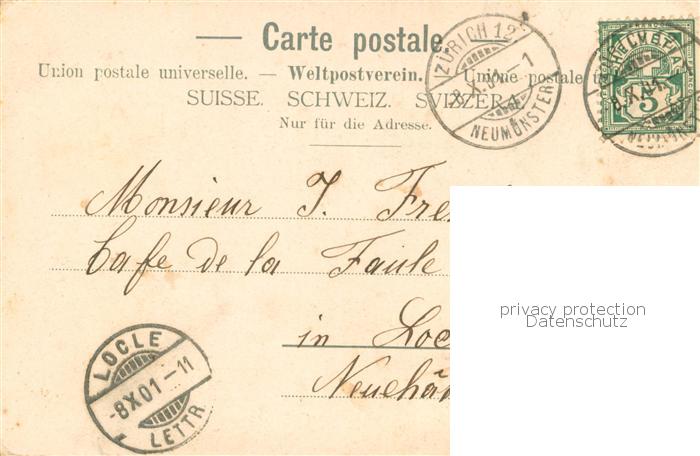 Carte postale.
Union postale universelle. — Weltpostverein. — Unione postale
SUISSE. SCHWEIZ. SVIZZERA.
Nur für die Adresse.
ZÜRICH 12
8.X.01.-1
NEUMÜNSTER
HELVETIA
5
Monsieur J. Fre
Cafe de la Faule
in Loc
Neuchâ
privacy protection
Datenschutz
LOCLE
-8X01-11
LETTR.